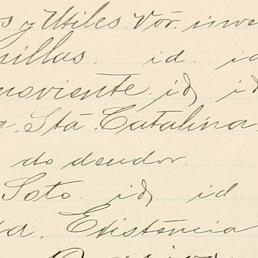 s y Utiles. Vór. inve
nillas. id. id
moviente. id, id
a. Stâ. Catalina.
do deudor.
Soto. id, id.
ia. Existência